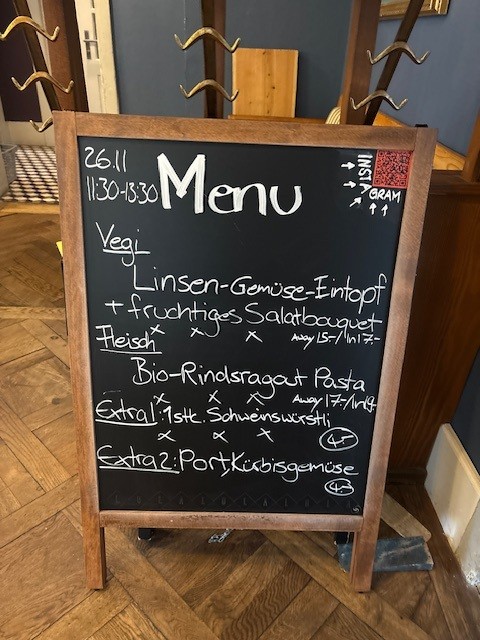 26.11
11:30-13:30
Menu
INSTA
GRAM
Vegi
Linsen-Gemüse-Eintopf
+ fruchtiges Salatbouquet
Away 15.-/In 17.-
Fleisch
Bio-Rindsragout Pasta
Away 17.-/In 19.-
Extra 1: 1stk. Schweinswürstli
4.-
Extra 2: Port. Kürbisgemüse